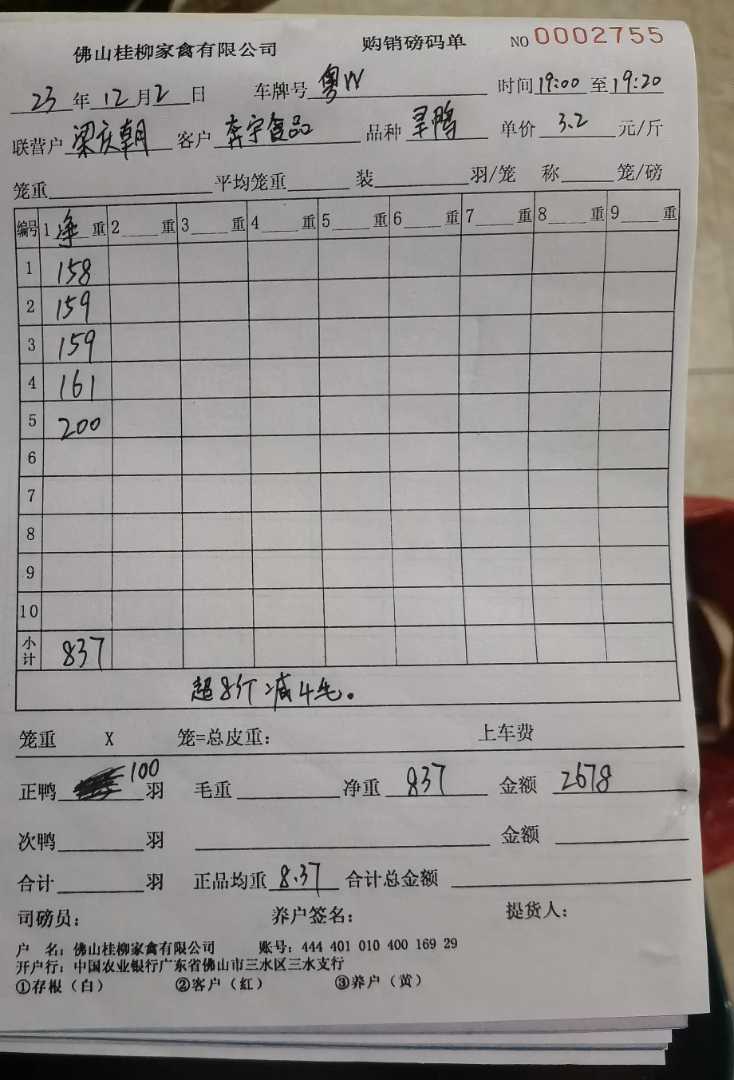 佛山桂柳家禽有限公司 购销磅码单 NO 0002755
23年12月2日 车牌号 粤W 时间19:00至19:20
联营户 梁庆朝 客户 奔宇食品 品种 旱鸭 单价 3.2 元/斤
笼重 平均笼重 装 羽/笼 称 笼/磅
编号 1净重 2重 3重 4重 5重 6重 7重 8重 9重
1 158
2 159
3 159
4 161
5 200
6
7
8
9
10
小计 837
超8斤减4毛。
笼重 X 笼=总皮重: 上车费
正鸭 100 羽 毛重 净重 837 金额 2678
次鸭 羽 金额
合计 羽 正品均重 8.37 合计总金额
司磅员: 养户签名: 提货人:
户 名: 佛山桂柳家禽有限公司 账号: 444 401 010 400 169 29
开户行: 中国农业银行广东省佛山市三水区三水支行
①存根(白) ②客户(红) ③养户(黄)